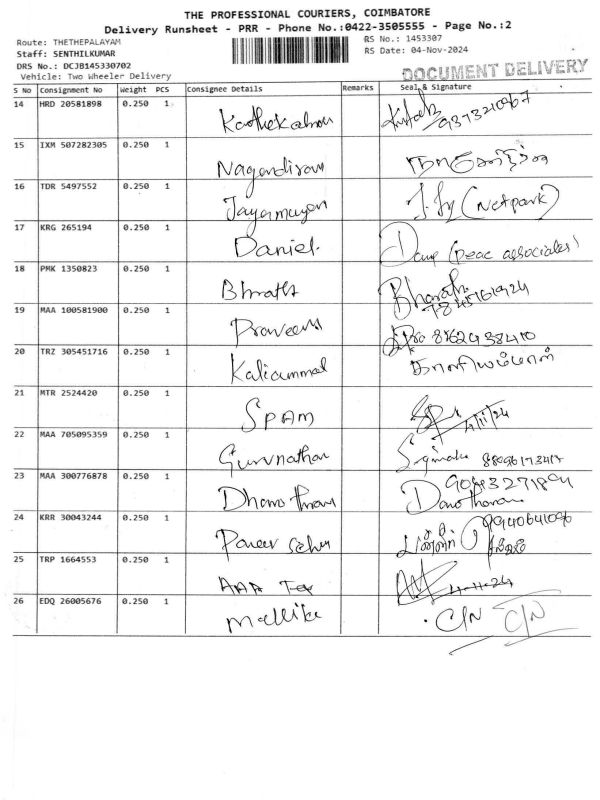 THE PROFESSIONAL COURIERS, COIMBATORE
Delivery Runsheet - PRR - Phone No.:0422-3505555 - Page No.:2
Route: THETHEPALAYAM
RS No.: 1453307
Staff: SENTHILKUMAR
RS Date: 04-Nov-2024
DRS No.: DCJB145330702
Vehicle: Two Wheeler Delivery
DOCUMENT DELIVERY
S No Consignment No Weight PCS Consignee Details Remarks Seal & Signature
14 HRD 20581898 0.250 1
15 IXM 507282305 0.250 1 Nagendiran
16 TDR 5497552 0.250 1 (Netpark)
17 KRG 265194 0.250 1 Daniel (peac associates)
18 PMK 1350823 0.250 1 Bharath
19 MAA 100581900 0.250 1 Praveen
20 TRZ 305451716 0.250 1 Kaliammal காளியம்மாள்
21 MTR 2524420 0.250 1 SPAM 4/11/24
22 MAA 705095359 0.250 1 Gurunathan
23 MAA 300776878 0.250 1
24 KRR 30043244 0.250 1 9940641096
25 TRP 1664553 0.250 1 4-11-24
26 EDQ 26005676 0.250 1 Mallika C/N C/N